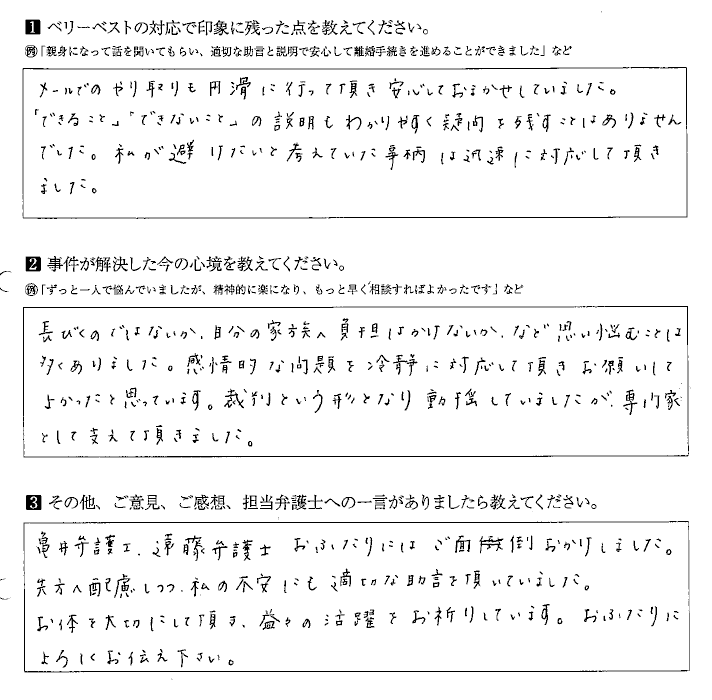 1 ベリーベストの対応で印象に残った点を教えてください。
例「親身になって話を聞いてもらい、適切な助言と説明で安心して離婚手続きを進めることができました」など
メールでのやり取りも円滑に行って頂き安心しておまかせしていました。
「できること」「できないこと」の説明もわかりやすく疑問を残すことはありません
でした。私が避けたいと考えていた事柄は迅速に対応して頂き
ました。
2 事件が解決した今の心境を教えてください。
例「ずっと一人で悩んでいましたが、精神的に楽になり、もっと早く相談すればよかったです」など
長びくのではないか、自分の家族へ負担はかけないか、など思い悩むことは
多くありました。感情的な問題を冷静に対応して頂きお願いして
よかったと思っています。裁判という形となり動揺していましたが、専門家
として支えて頂きました。
3 その他、ご意見、ご感想、担当弁護士への一言がありましたら教えてください。
亀井弁護士、遠藤弁護士 おふたりにはご面倒おかけしました。
先方へ配慮しつつ、私の不安にも適切な助言を頂いていました。
お体を大切にして頂き、益々の活躍をお祈りしています。おふたりに
よろしくお伝え下さい。